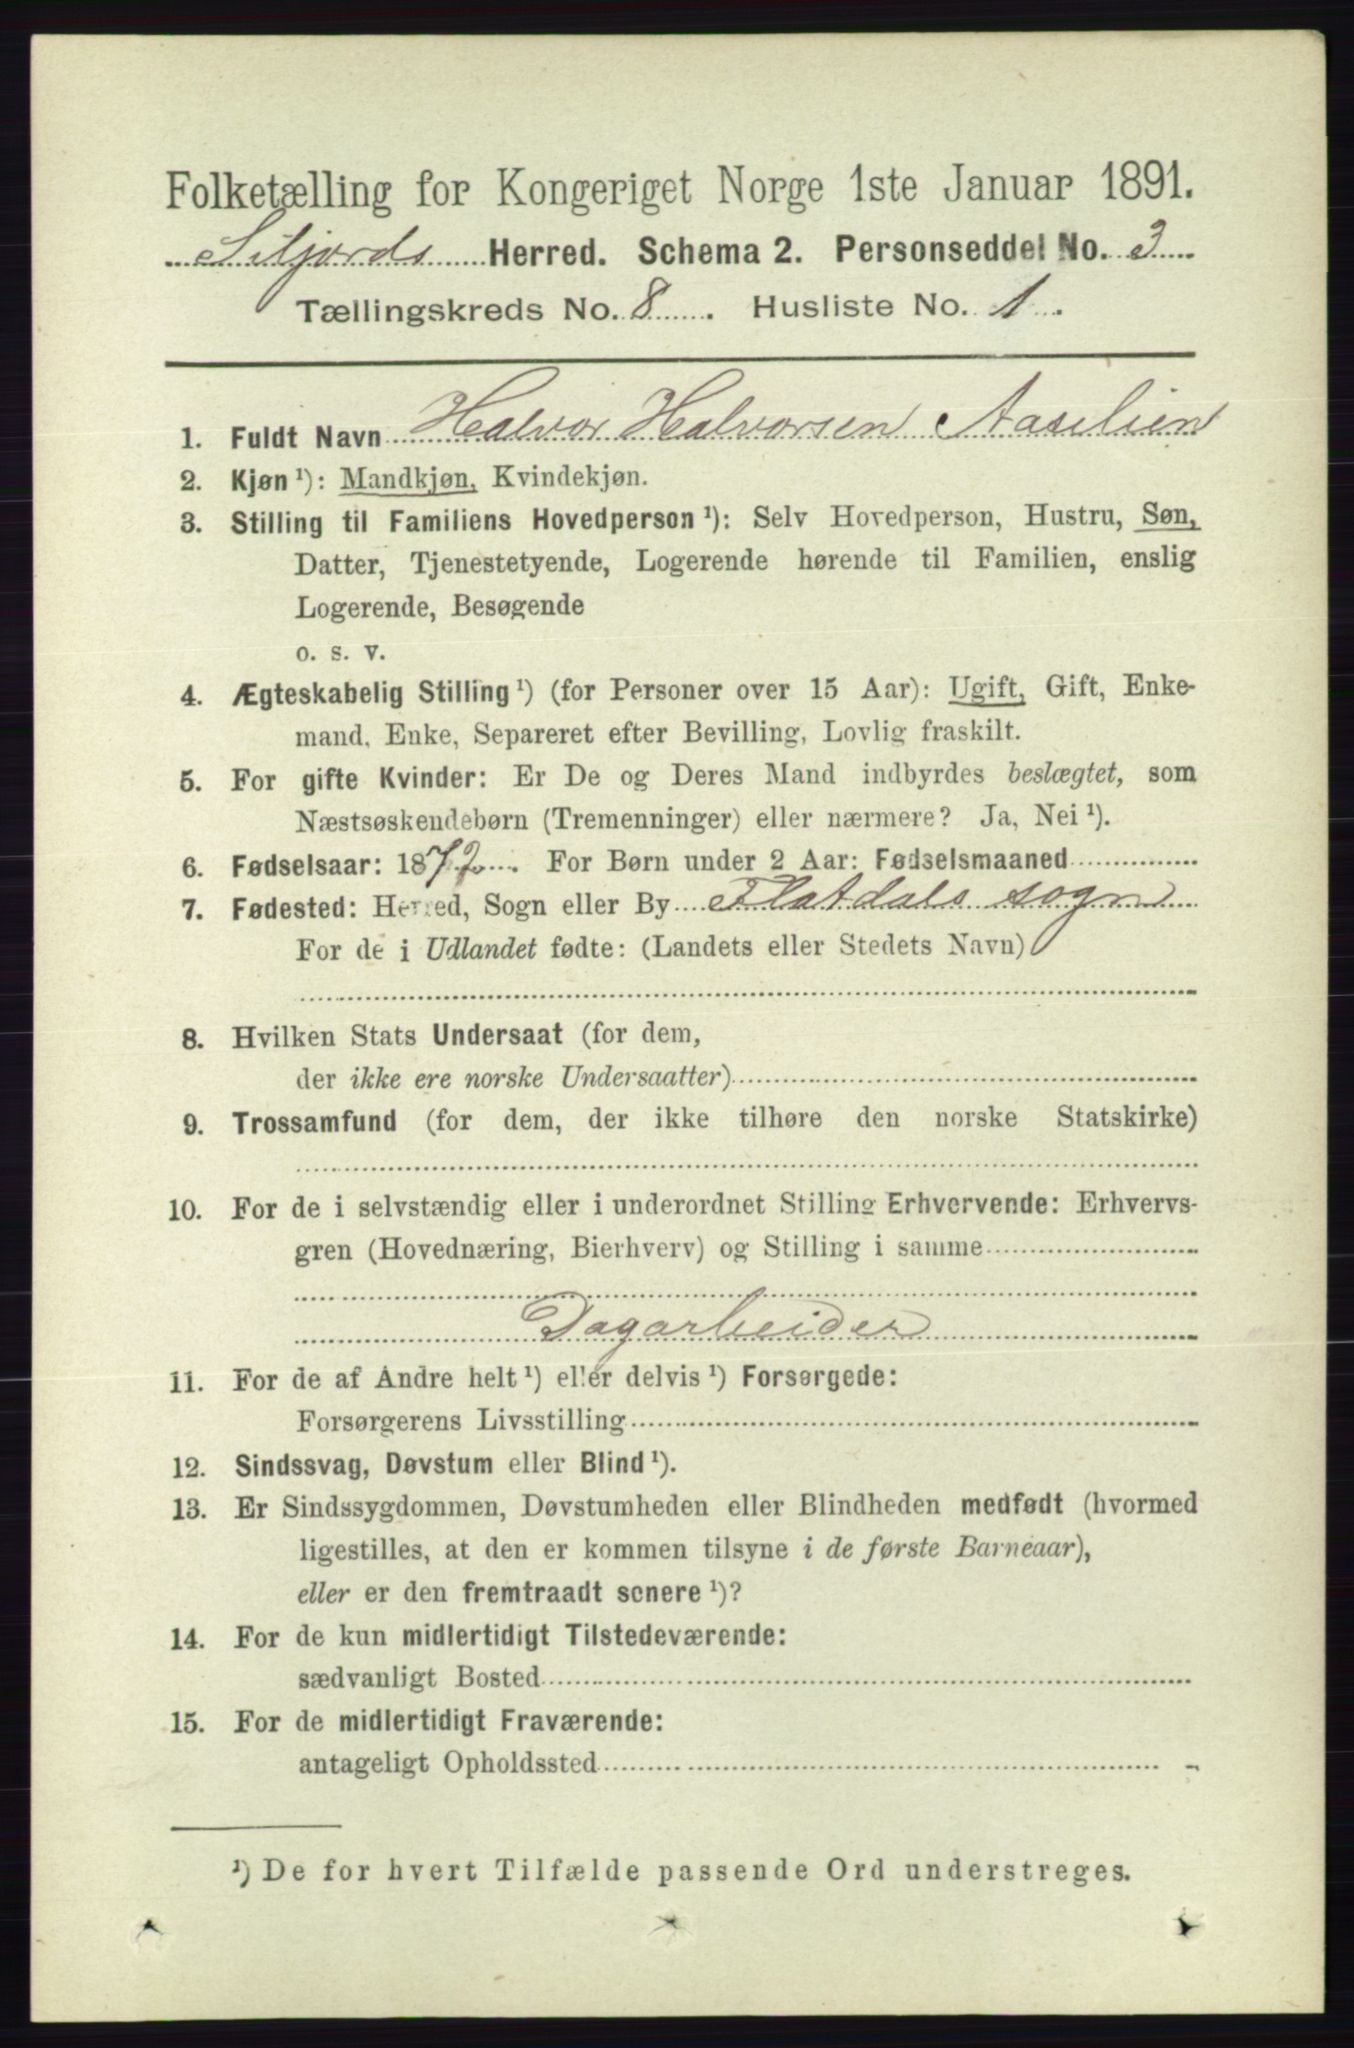 Folketælling for Kongeriget Norge 1ste Januar 1891.
Siljords Herred. Schema 2. Personseddel No. 3
Tællingskreds No. 8. Husliste No. 1.
1. Fuldt Navn Halvor Halvorsen Aaselien
2. Kjøn ¹): Mandkjøn, Kvindekjøn.
3. Stilling til Familiens Hovedperson ¹): Selv Hovedperson, Hustru, Søn,
Datter, Tjenestetyende, Logerende hørende til Familien, enslig
Logerende, Besøgende
o. s. v.
4. Ægteskabelig Stilling ¹) (for Personer over 15 Aar): Ugift, Gift, Enke-
mand, Enke, Separeret efter Bevilling, Lovlig fraskilt.
5. For gifte Kvinder: Er De og Deres Mand indbyrdes beslægtet, som
Næstsøskendebørn (Tremenninger) eller nærmere? Ja, Nei ¹).
6. Fødselsaar: 1872. For Børn under 2 Aar: Fødselsmaaned
7. Fødested: Herred, Sogn eller By Flatdals sogn
For de i Udlandet fødte: (Landets eller Stedets Navn)
8. Hvilken Stats Undersaat (for dem,
der ikke ere norske Undersaatter)
9. Trossamfund (for dem, der ikke tilhøre den norske Statskirke)
10. For de i selvstændig eller i underordnet Stilling Erhvervende: Erhvervs-
gren (Hovednæring, Bierhverv) og Stilling i samme
Dagarbeider
11. For de af Andre helt ¹) eller delvis ¹) Forsørgede:
Forsørgerens Livsstilling
12. Sindssvag, Døvstum eller Blind ¹).
13. Er Sindssygdommen, Døvstumheden eller Blindheden medfødt (hvormed
ligestilles, at den er kommen tilsyne i de første Barneaar),
eller er den fremtraadt senere ¹)?
14. For de kun midlertidigt Tilstedeværende:
sædvanligt Bosted
15. For de midlertidigt Fraværende:
antageligt Opholdssted
¹) De for hvert Tilfælde passende Ord understreges.